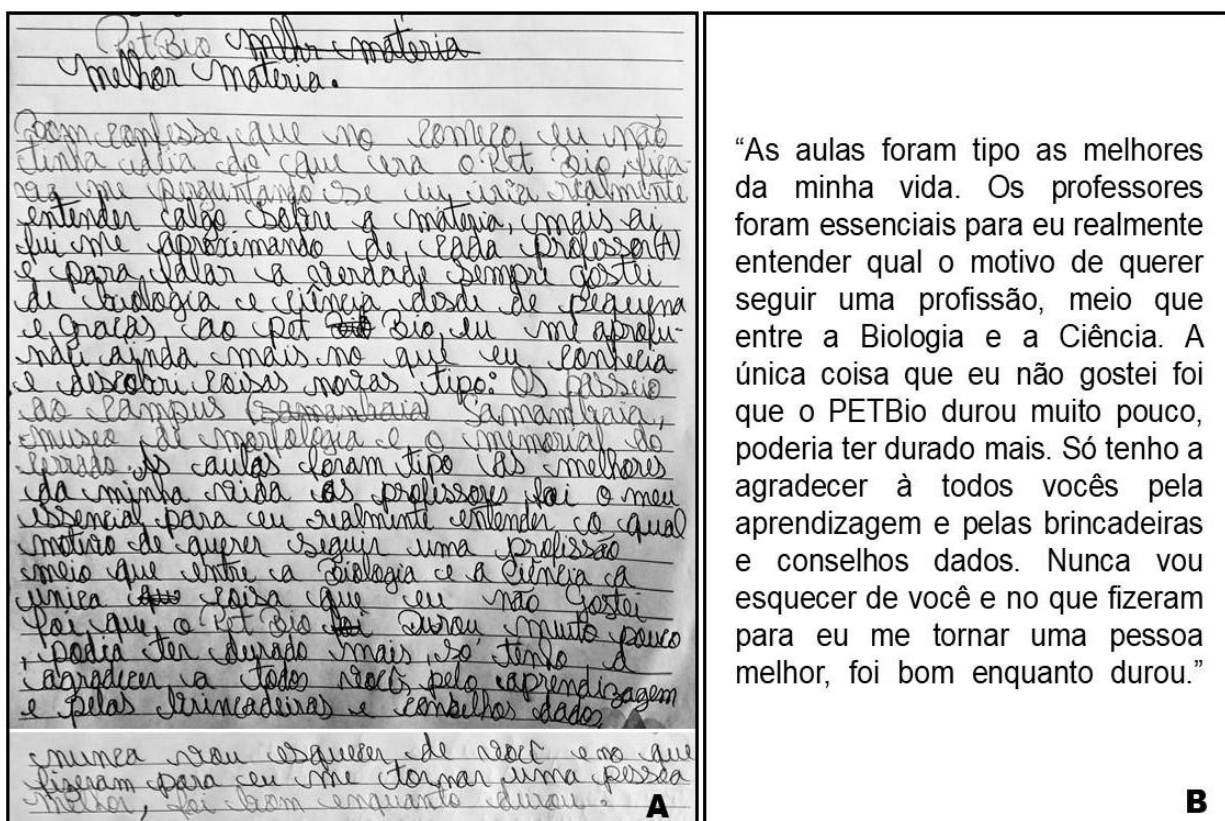 Pet Bio melhr materia
melhor materia.
Bom confesso que no começo eu não
tinha ideia do que era o Pet Bio, fica-
va me perguntando se eu iria realmente
entender algo sobre a materia, mais ai
fui me aproximando de cada professor(A)
e para falar a verdade sempre gostei
de biologia e ciência desde de pequena
e graças ao Pet Bio Bio, eu me aprofu-
ndei ainda mais no que eu conhecia
e descobri coisas novas tipo: Os passeio
ao campus (samambaia Samambaia,
museo de morfologia e, o memorial do
cerrado. As aulas foram tipo as melhores
da minha vida os professores foi o meu
essencial para eu realmente entender o qual
motivo de querer seguir uma profissão
meio que entre a Biologia e a Ciência a
unica que coisa que eu não gostei
foi que, o Pet Bio foi durou muito pouco
, podia ter durado mais, só tenho, a
agradecer a todos você pelo aprendizagem
e pelas brincadeiras e conselhos dados,
nunca vou esquecer de você e no que
fizeram para eu me tornar uma pessoa
melhor, foi bom enquanto durou.
A
“As aulas foram tipo as melhores
da minha vida. Os professores
foram essenciais para eu realmente
entender qual o motivo de querer
seguir uma profissão, meio que
entre a Biologia e a Ciência. A
única coisa que eu não gostei foi
que o PETBio durou muito pouco,
poderia ter durado mais. Só tenho a
agradecer à todos vocês pela
aprendizagem e pelas brincadeiras
e conselhos dados. Nunca vou
esquecer de você e no que fizeram
para eu me tornar uma pessoa
melhor, foi bom enquanto durou.”
B